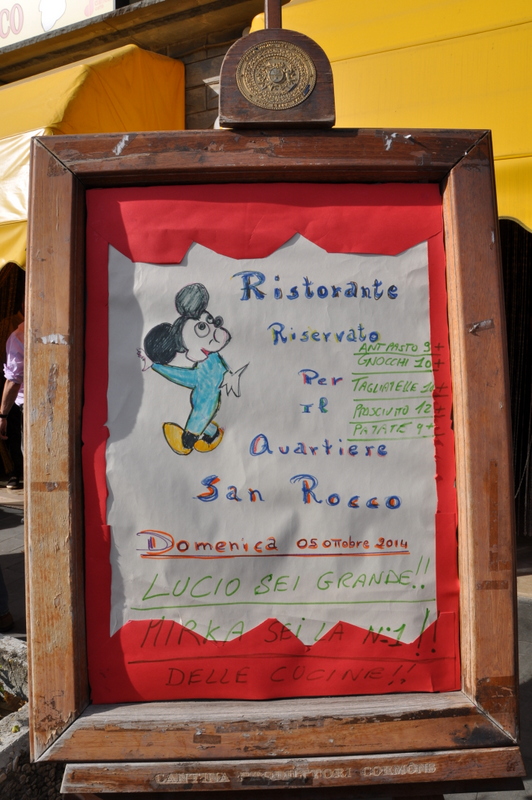 CO
Ristorante
Riservato
ANTIPASTO 9+
GNOCCHI 10+
Per
TAGLIATELLE 10+
Il
PROSCIUTO 12+
PATATE 9+
Quartiere
San Rocco
Domenica 05 ottobre 2014
LUCIO SEI GRANDE!!
MIRKA SEI LA N:1!!
DELLE CUCINE!!
CANTINA PRODUTTORI CORMÒNS